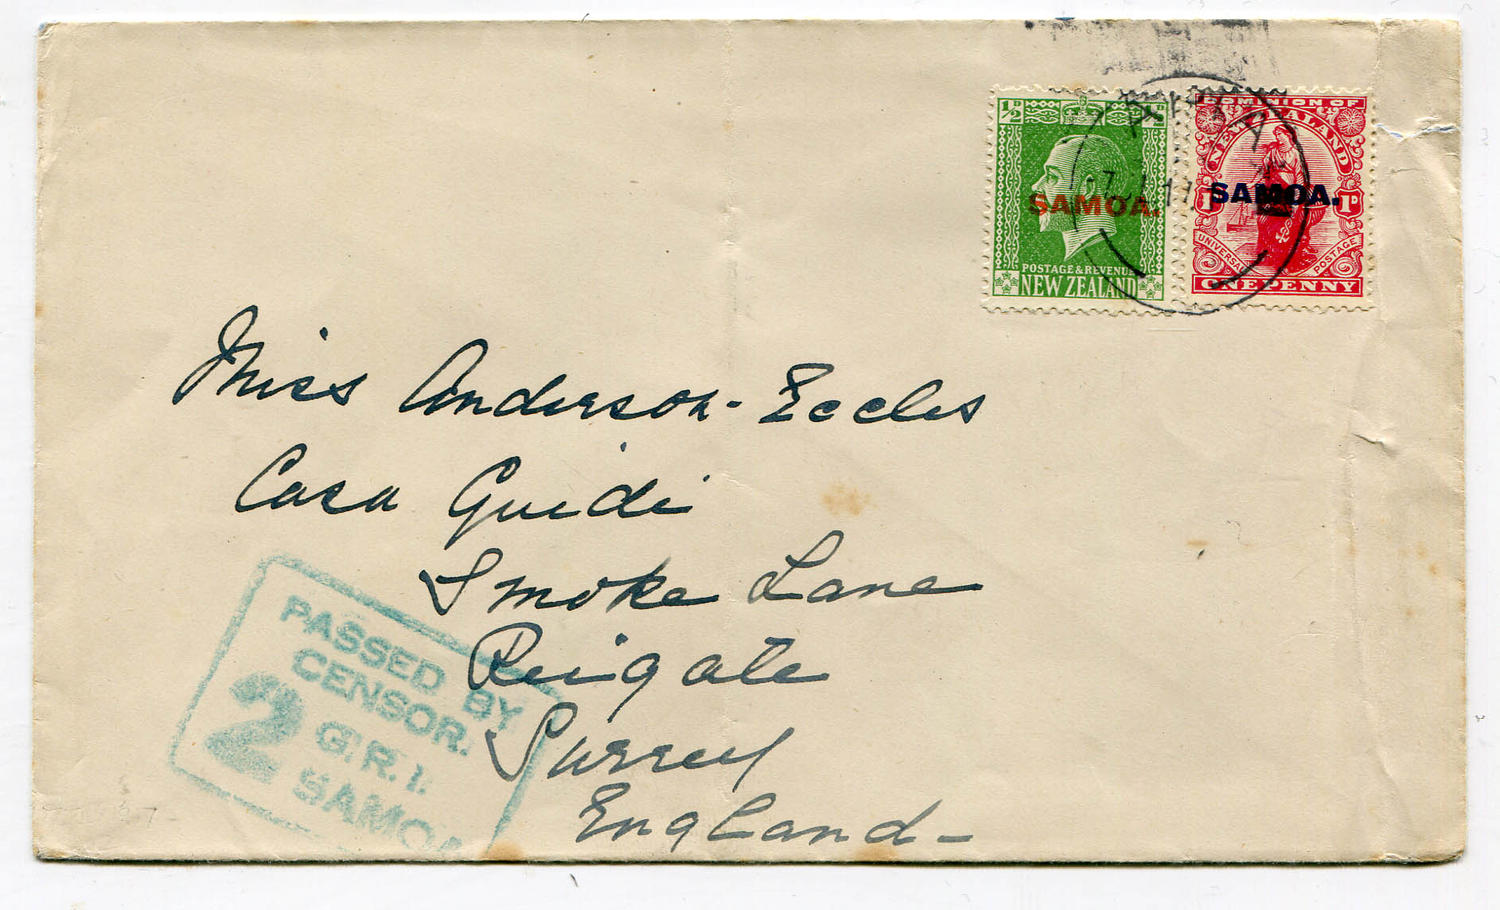 ½D ½D
SAMOA.
POSTAGE & REVENUE
NEW ZEALAND
DOMINION OF
NEW ZEALAND
SAMOA.
1D 1D
UNIVERSAL POSTAGE
ONE PENNY
APIA
Miss Anderson-Eccles
Casa Guidi
Smoke Lane
Reigate
Surrey
England-
PASSED BY
CENSOR.
2 G.R.I.
SAMOA